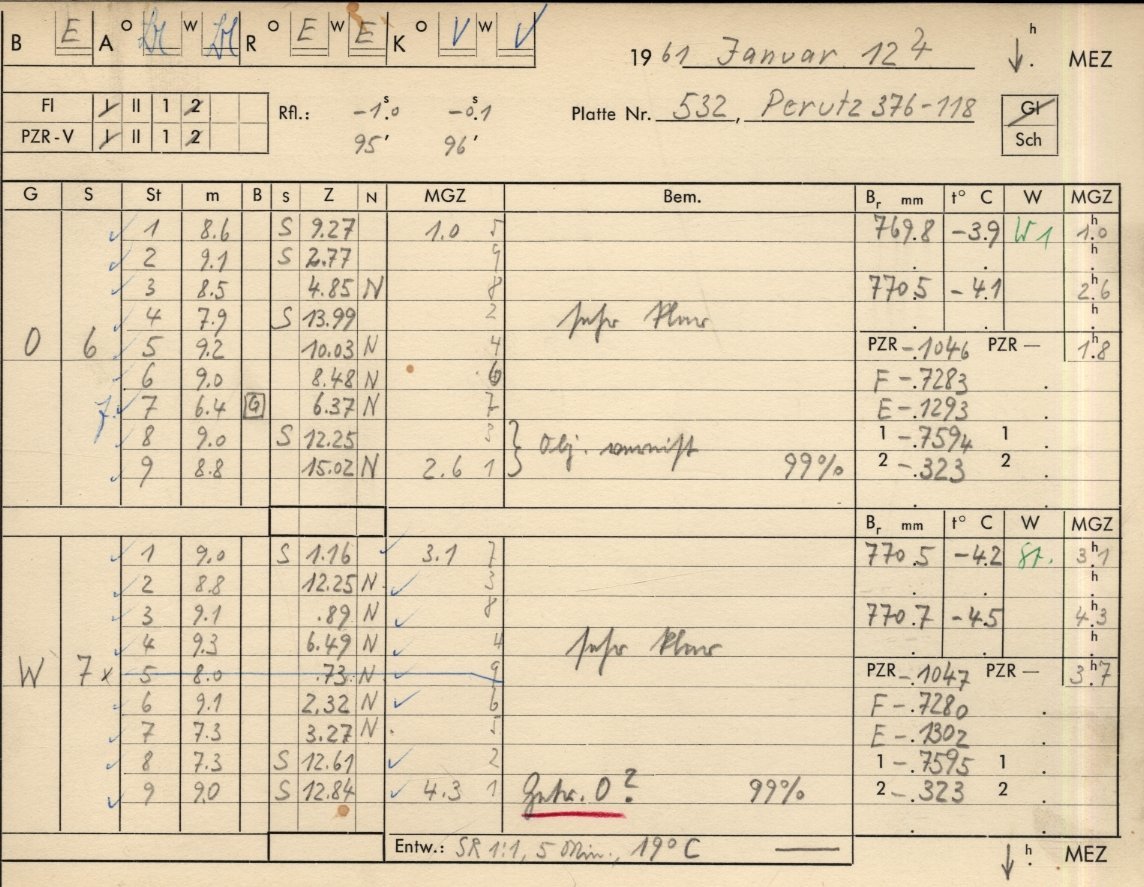 B E A O W R O E W E K O V W V 19 61 Januar 12 h MEZ
FI I II 1 2 Rfl.: -1.ˢ0 -0.ˢ1 Platte Nr. 532, Perutz 376-118 GI
PZR-V I II 1 2 95' 96' Sch
G S St m B S Z N MGZ Bem. Bᵣ mm t° C W MGZ
1 8.6 S 9.27 1.0 5 769.8 -3.9 W1 1.ʰ0
2 9.1 S 2.77 9 h
3 8.5 4.85 N 8 770.5 -4.1 2.ʰ6
4 7.9 S 13.99 2 sehr klar h
O 6 5 9.2 10.03 N 4 PZR -.1046 PZR — 1.ʰ8
6 9.0 8.48 N 6 F -.7283
7. 7 6.4 G 6.37 N 7 E -.1293
8 9.0 S 12.25 3 Obj. vereist 1 -.7594 1
9 8.8 15.02 N 2.6 1 99% 2 -.323 2
Bᵣ mm t° C W MGZ
1 9.0 S 1.16 3.1 7 770.5 -4.2 St. 3.ʰ1
2 8.8 12.25 N 3 h
3 9.1 .89 N 8 770.7 -4.5 4.ʰ3
4 9.3 6.49 N 4 sehr klar h
W 7 x 5 8.0 .73 N 9 PZR -.1047 PZR — 3.ʰ7
6 9.1 2.32 N 6 F -.7280
7 7.3 3.27 N 5 E -.1302
8 7.3 S 12.61 2 1 -.7595 1
9 9.0 S 12.84 4.3 1 O? 99% 2 -.323 2
Entw.: SR 1:1, 5 Min., 19°C — h MEZ